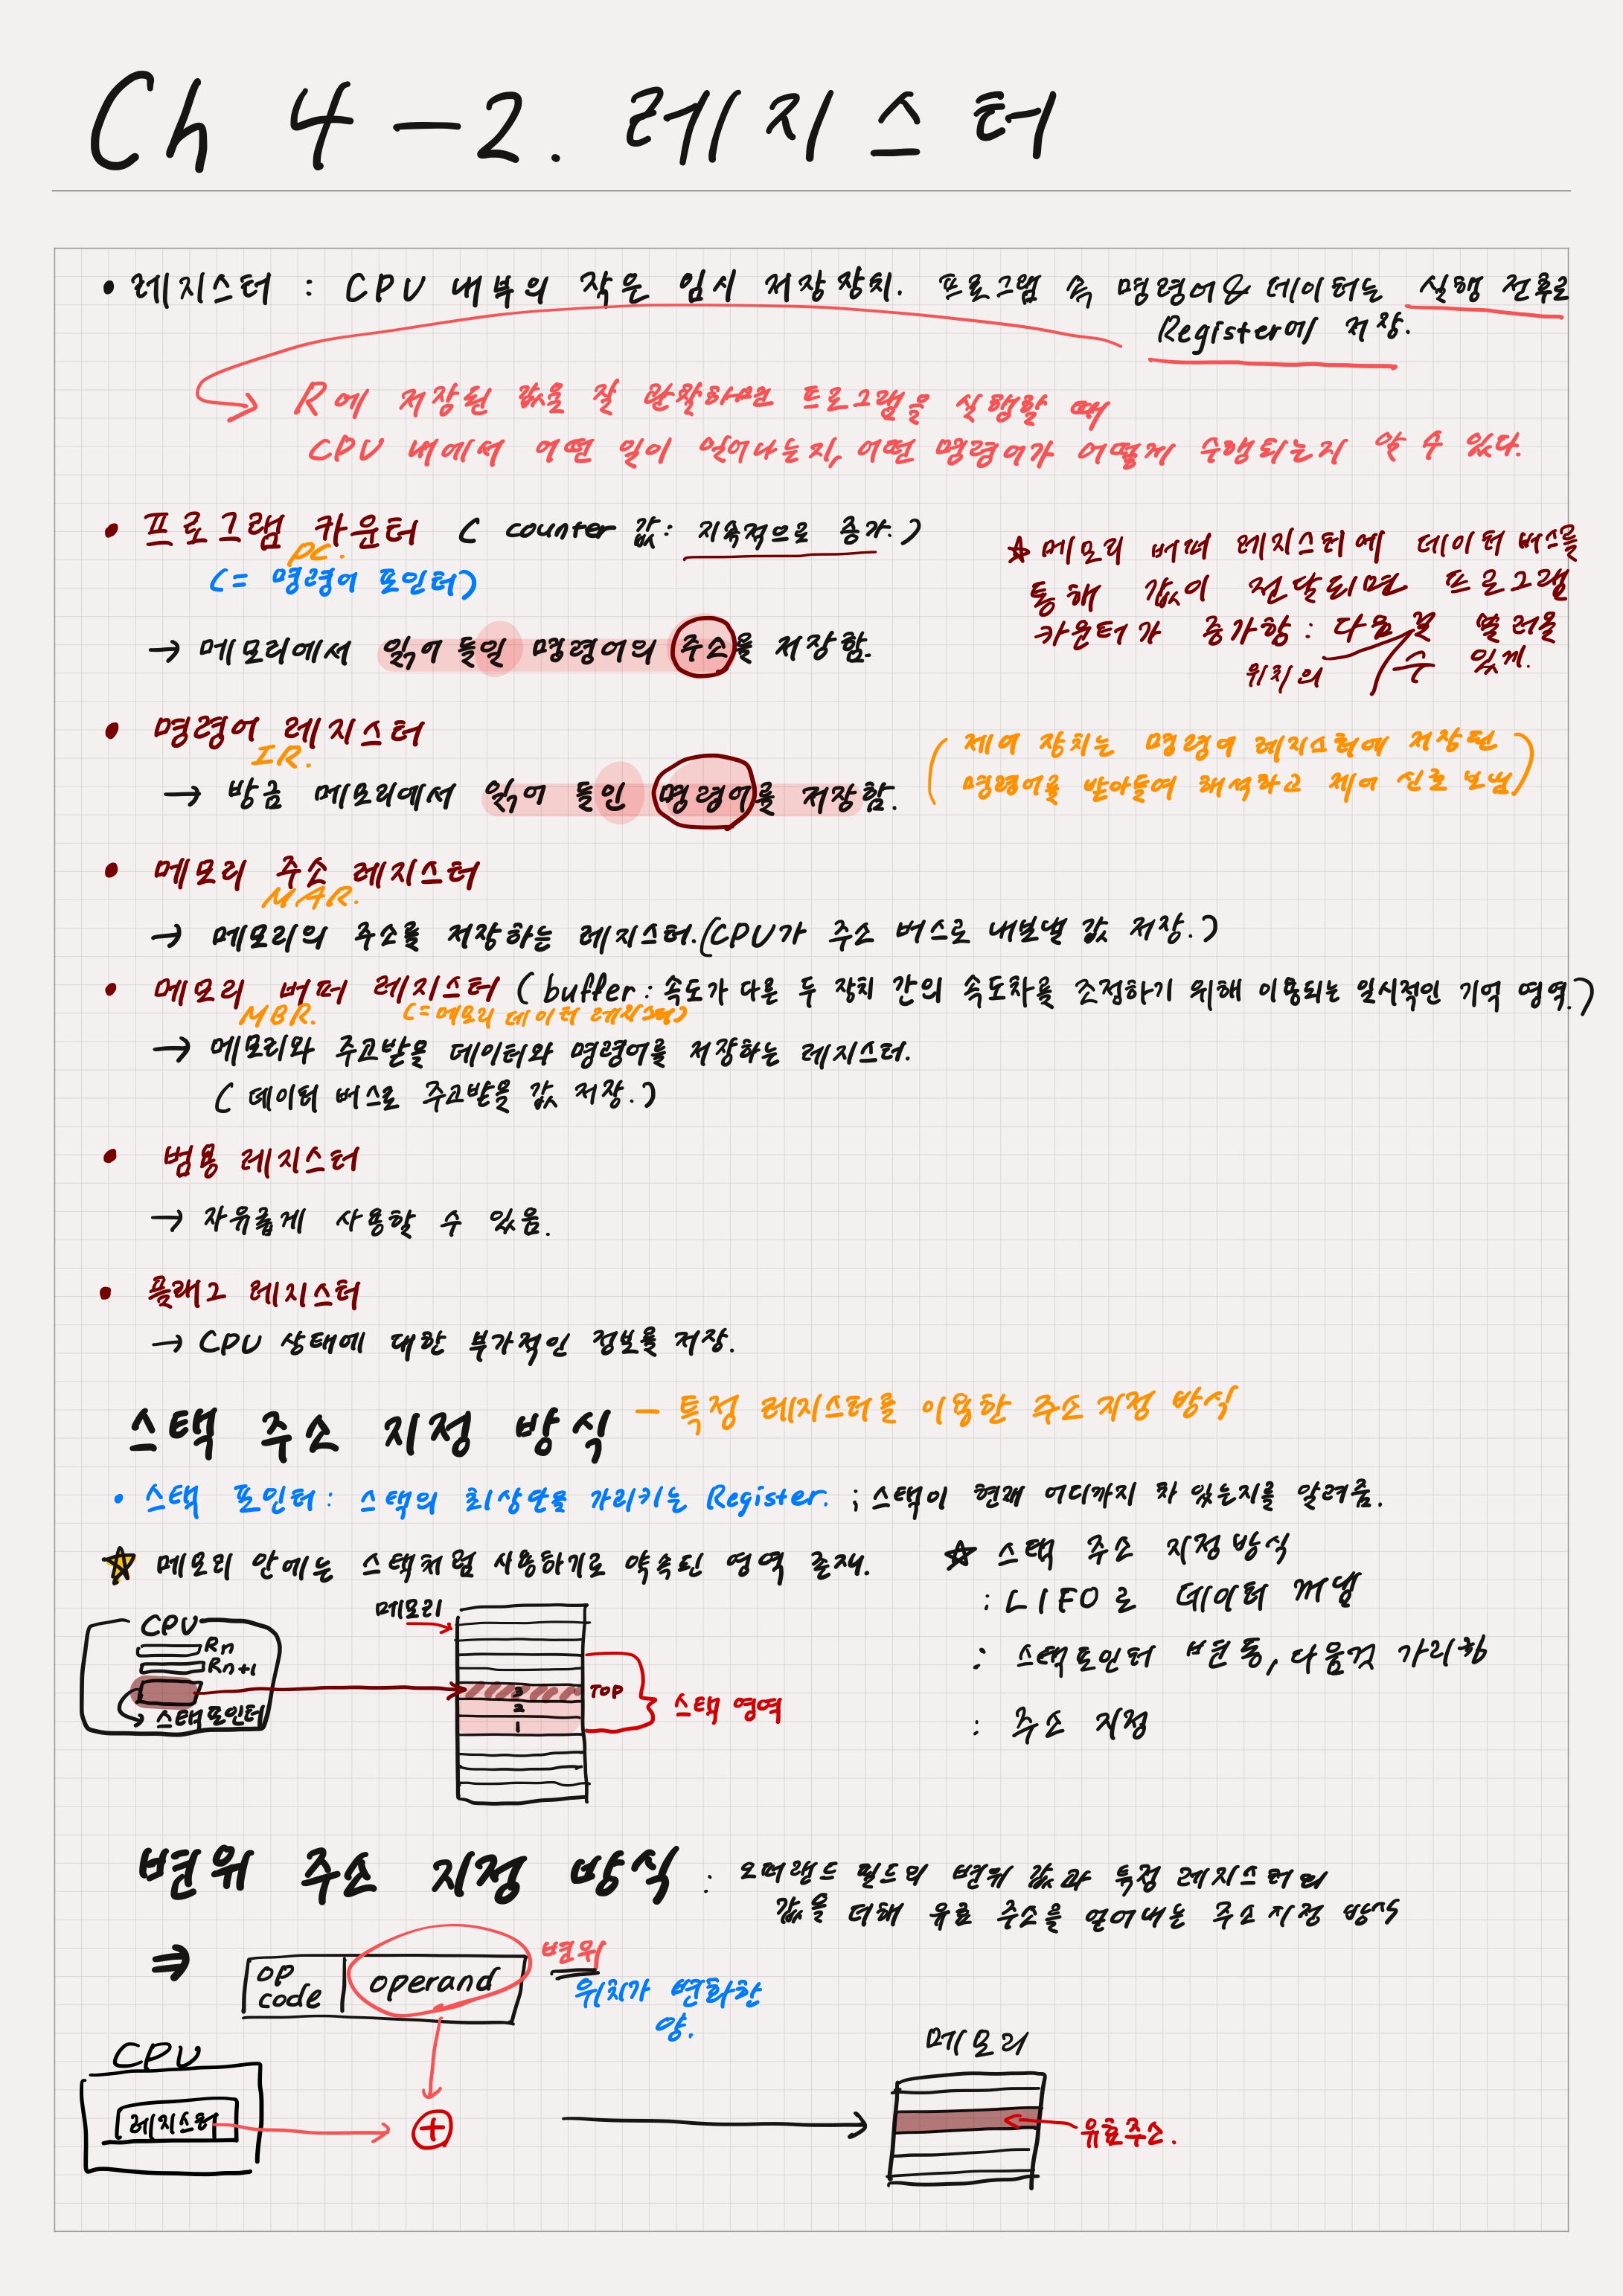 Ch 4-2. 레지스터
• 레지스터 : CPU 내부의 작은 임시 저장 장치. 프로그램 속 명령어 & 데이터는 실행 전후로
Register에 저장.
R에 저장된 값을 잘 관찰하면 프로그램을 실행할 때
CPU 내에서 어떤 일이 일어나는지, 어떤 명령어가 어떻게 수행되는지 알 수 있다.
• 프로그램 카운터 ( counter 값: 지속적으로 증가. )
PC.
(= 명령어 포인터)
→ 메모리에서 읽어 들일 명령어의 주소를 저장함.
☆ 메모리 버퍼 레지스터에 데이터 버스를
통해 값이 전달되면 프로그램
카운터가 증가함 : 다음 꺼 열러올
위치의 수 있게.
• 명령어 레지스터
IR.
→ 방금 메모리에서 읽어 들인 명령어를 저장함.
( 제어 장치는 명령어 레지스터에 저장된
명령어를 받아들여 해석하고 제어 신호 보냄 )
• 메모리 주소 레지스터
MAR.
→ 메모리의 주소를 저장하는 레지스터. (CPU가 주소 버스로 내보낼 값 저장.)
• 메모리 버퍼 레지스터 ( buffer : 속도가 다른 두 장치 간의 속도차를 조정하기 위해 이용되는 일시적인 기억 영역.)
MBR. (= 메모리 데이터 레지스터)
→ 메모리와 주고받을 데이터와 명령어를 저장하는 레지스터.
( 데이터 버스로 주고받을 값 저장. )
• 범용 레지스터
→ 자유롭게 사용할 수 있음.
• 플래그 레지스터
→ CPU 상태에 대한 부가적인 정보를 저장.
스택 주소 지정 방식 - 특정 레지스터를 이용한 주소 지정 방식
• 스택 포인터 : 스택의 최상단을 가리키는 Register. ; 스택이 현재 어디까지 차 있는지를 알려줌.
☆ 메모리 안에는 스택처럼 사용하기로 약속된 영역 존재.
☆ 스택 주소 지정 방식
: LIFO로 데이터 꺼냄
: 스택포인터 변동, 다음것 가리킴
: 주소 지정
CPU
Rn
Rn+1
스택포인터
메모리
3
2
1
TOP
스택 영역
변위 주소 지정 방식 : 오퍼랜드 필드의 변위 값과 특정 레지스터의
값을 더해 유효 주소를 얻어내는 주소 지정 방식
⇒
op code
operand
변위
위치가 변화한
양.
CPU
레지스터
+
메모리
유효주소.